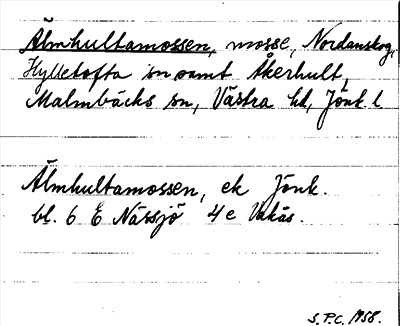 Älmhultamossen, mosse, Nordanskog,
Hylletofta sn samt Åkerhult,
Malmbäcks sn, Västra hd, Jönk. l
Älmhultamossen, ek Jönk.
bl. 6 E Nässjö 4e Vakås.
S.P.C. 1958.